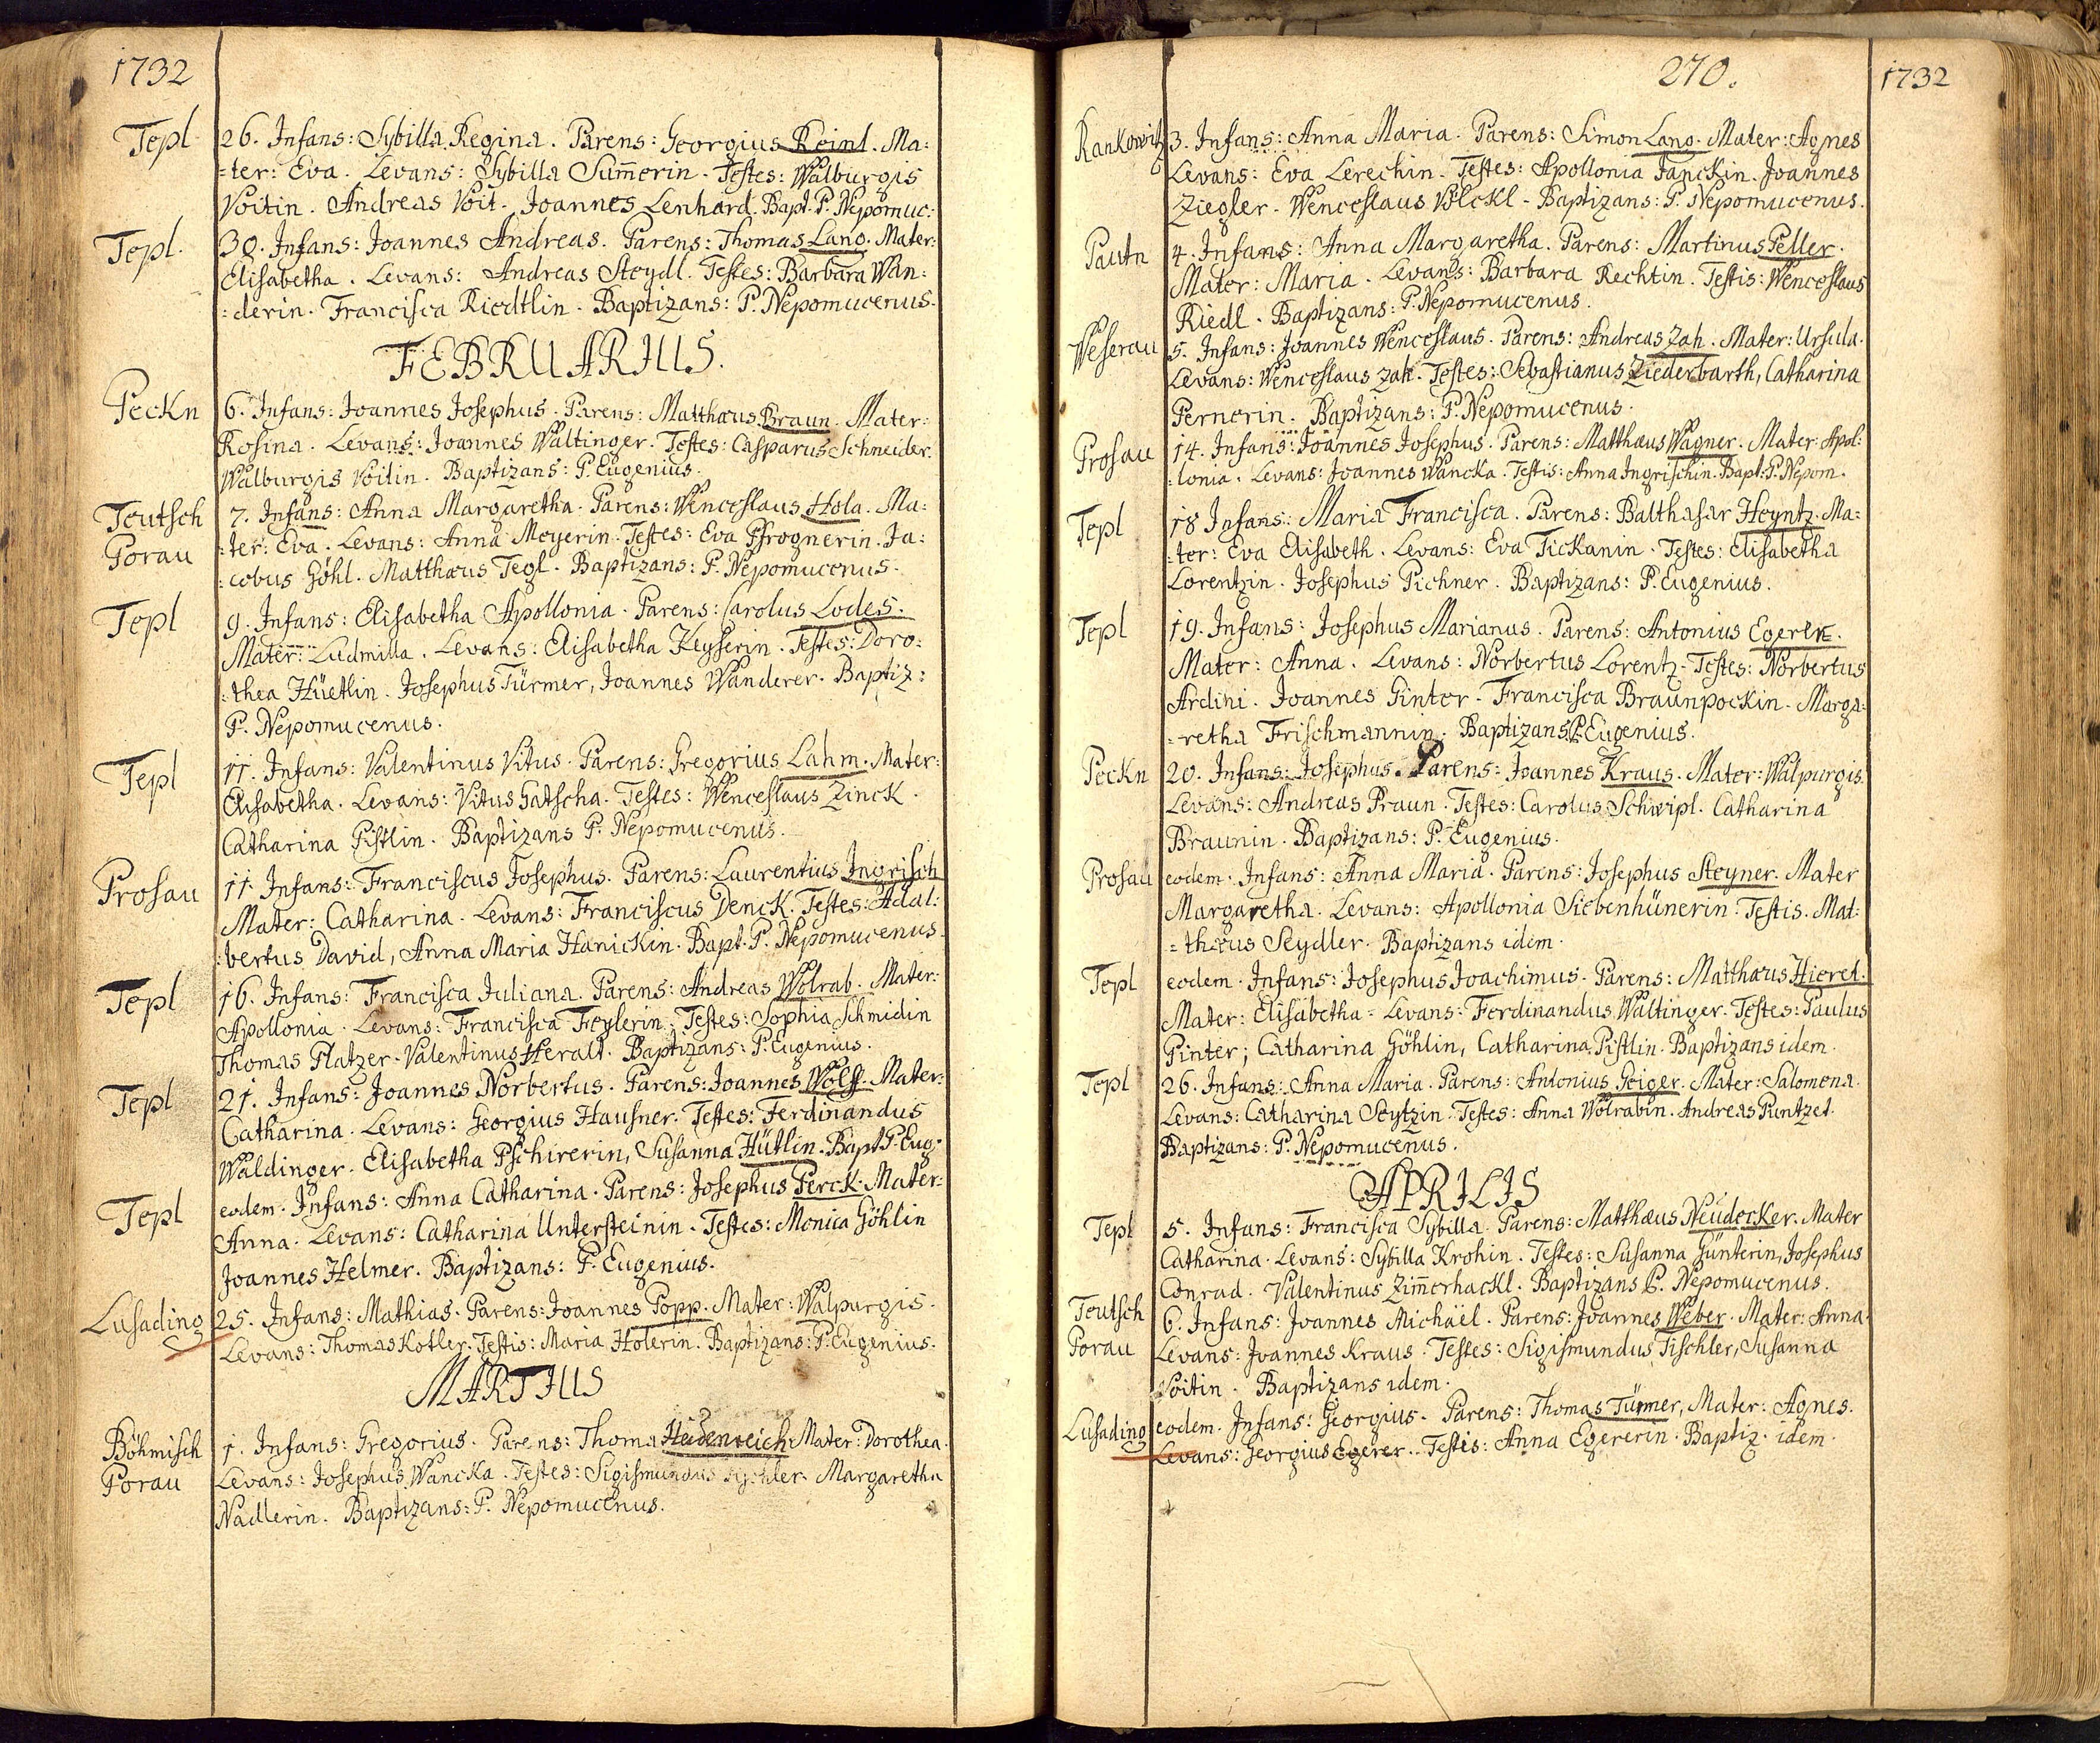 1732
Tepl 26. Infans: Sybilla Regina. Parens: Georgius Reinl. Ma:
=ter: Eva. Levans: Sybilla Sum̄erin. Testes: Walburgis
Voitin. Andreas Voit. Joannes Lenhard. Bapt. P. Nepomuc:
Tepl. 30. Infans: Joannes Andreas. Parens: Thomas Lang. Mater:
Elisabetha. Levans: Andreas Steydl. Testes: Barbara Wan:
:derin. Francisca Riedtlin. Baptizans: P. Nepomucenus.
FEBRUARIUS.
Peckn 6. Infans: Joannes Josephus. Parens: Matthæus Braun. Mater:
Rosina. Levans: Joannes Waltinger. Testes: Casparus Schneider.
Walburgis Voitin. Baptizans: P. Eugenius.
Teutsch 7. Infans: Anna Margaretha. Parens: Wenceslaus Hola. Ma:
Porau :ter: Eva. Levans: Anna Meyerin. Testes: Eva Pfrognerin. Ja:
:cobus Göhl. Matthæus Tegl. Baptizans: P. Nepomucenus.
Tepl 9. Infans: Elisabetha Apollonia. Parens: Carolus Lodes.
Mater: Ludmilla. Levans: Elisabetha Keyserin. Testes: Doro:
:thea Hüetlin. Josephus Türmer, Joannes Wanderer. Baptiz:
P. Nepomucenus.
Tepl 11. Infans: Valentinus Vitus. Parens: Gregorius Lahm. Mater:
Elisabetha. Levans: Vitus Gatscha. Testes: Wenceslaus Zinck.
Catharina Pistlin. Baptizans P. Nepomucenus.
Prosau 11. Infans: Franciscus Josephus. Parens: Laurentius Ingrisch
Mater: Catharina. Levans: Franciscus Denck. Testes: Adal:
:bertus David, Anna Maria Hanickin. Bapt. P. Nepomucenus.
Tepl 16. Infans: Francisca Juliana. Parens: Andreas Wolrab. Mater:
Apollonia. Levans: Francisca Feylerin. Testes: Sophia Schmidin
Thomas Platzer. Valentinus Heralt. Baptizans: P. Eugenius.
Tepl 21. Infans: Joannes Norbertus. Parens: Joannes Wolff. Mater:
Catharina. Levans: Georgius Hausner. Testes: Ferdinandus
Waldinger. Elisabetha Pschirerin, Susanna Hütlin. Bapt. P. Eug:
Tepl eodem. Infans: Anna Catharina. Parens: Josephus Ferck. Mater:
Anna. Levans: Catharina Untersteinin. Testes: Monica Göhlin
Joannes Helmer. Baptizans: P. Eugenius.
Lusading 25. Infans: Mathias. Parens: Joannes Popp. Mater: Walpurgis.
Levans: Thomas Kotler. Testis: Maria Holerin. Baptizans: P. Eugenius.
MARTIUS
Böhmisch 1. Infans: Gregorius. Parens: Thoma Heidenreich. Mater: Dorothea.
Porau Levans: Josephus Wancka. Testes: Sigismundus Margaretha
Nadlerin. Baptizans: P. Nepomucenus.
270. 1732
Rankowitz 3. Infans: Anna Maria. Parens: Simon Lang. Mater: Agnes
Levans: Eva Lerechin. Testes: Apollonia Janckin. Joannes
Ziegler. Wenceslaus Völckl. Baptizans: P. Nepomucenus.
Pautn 4. Infans: Anna Margaretha. Parens: Martinus Peller.
Mater: Maria. Levans: Barbara Rechtin. Testis: Wenceslaus
Riedl. Baptizans: P. Nepomucenus.
Weserau 5. Infans: Joannes Wenceslaus. Parens: Andreas Zah. Mater: Ursula.
Levans: Wenceslaus Zah. Testes: Sebastianus Ziederbarth, Catharina
Pernerin. Baptizans: P. Nepomucenus.
Prosau 14. Infans: Joannes Josephus. Parens: Matthæus Wagner. Mater: Apol:
:lonia. Levans: Joannes Wancka. Testis: Anna Ingrischin. Bapt: P. Nepom.
Tepl 18 Infans: Maria Francisca. Parens: Balthasar Heyntz. Ma:
:ter: Eva Elisabeth. Levans: Eva Tickanin. Testes: Elisabetha
Lorentzin. Josephus Pichner. Baptizans: P. Eugenius.
Tepl 19. Infans: Josephus Marianus. Parens: Antonius Egerer.
Mater: Anna. Levans: Norbertus Lorentz. Testes: Norbertus
Ardini. Joannes Pinter. Francisca Braunpockin. Marga:
:retha Frischmannin. Baptizans P. Eugenius.
Peckn 20. Infans: Josephus. Parens: Joannes Kraus. Mater: Walpurgis.
Levans: Andreas Praun. Testes: Carolus Schwipl. Catharina
Braunin. Baptizans: P. Eugenius.
Prosau eodem. Infans: Anna Maria. Parens: Josephus Steyner. Mater
Margaretha. Levans: Apollonia Siebenhünerin. Testis. Mat:
=thæus Seydler. Baptizans idem.
Tepl eodem. Infans: Josephus Joachimus. Parens: Matthæus Hieret.
Mater: Elisabetha. Levans: Ferdinandus Waltinger. Testes: Paulus
Pinter; Catharina Göhlin, Catharina Pistlin. Baptizans idem.
Tepl 26. Infans: Anna Maria. Parens: Antonius Geiger. Mater: Salomena.
Levans: Catharina Seytzin. Testes: Anna Wolrabin. Andreas Puntzet.
Baptizans: P. Nepomucenus.
APRILIS
Tepl 5. Infans: Francisca Sybilla. Parens: Matthæus Neudecker. Mater
Catharina. Levans: Sybilla Krohin. Testes: Susanna Günterin, Josephus
Conrad. Valentinus Zim̄erhackl. Baptizans P. Nepomucenus.
Teutsch 6. Infans: Joannes Michaël. Parens: Joannes Weber. Mater: Anna.
Porau Levans: Joannes Kraus. Testes: Sigismundus Tischler, Susanna
Voitin. Baptizans idem.
Lusading eodem. Infans: Georgius. Parens: Thomas Türmer, Mater: Agnes.
Levans: Georgius Egerer. Testis: Anna Egererin. Baptiz. idem.